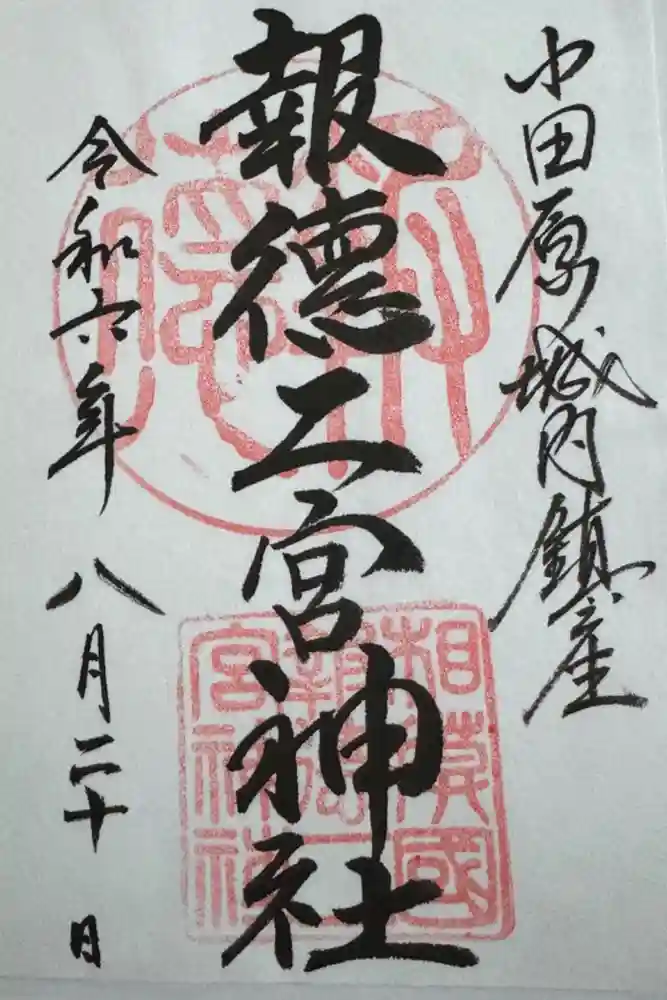 小田原城内鎮座
報徳二宮神社
令和六年 八月二十日
相模國
報徳二
宮神社